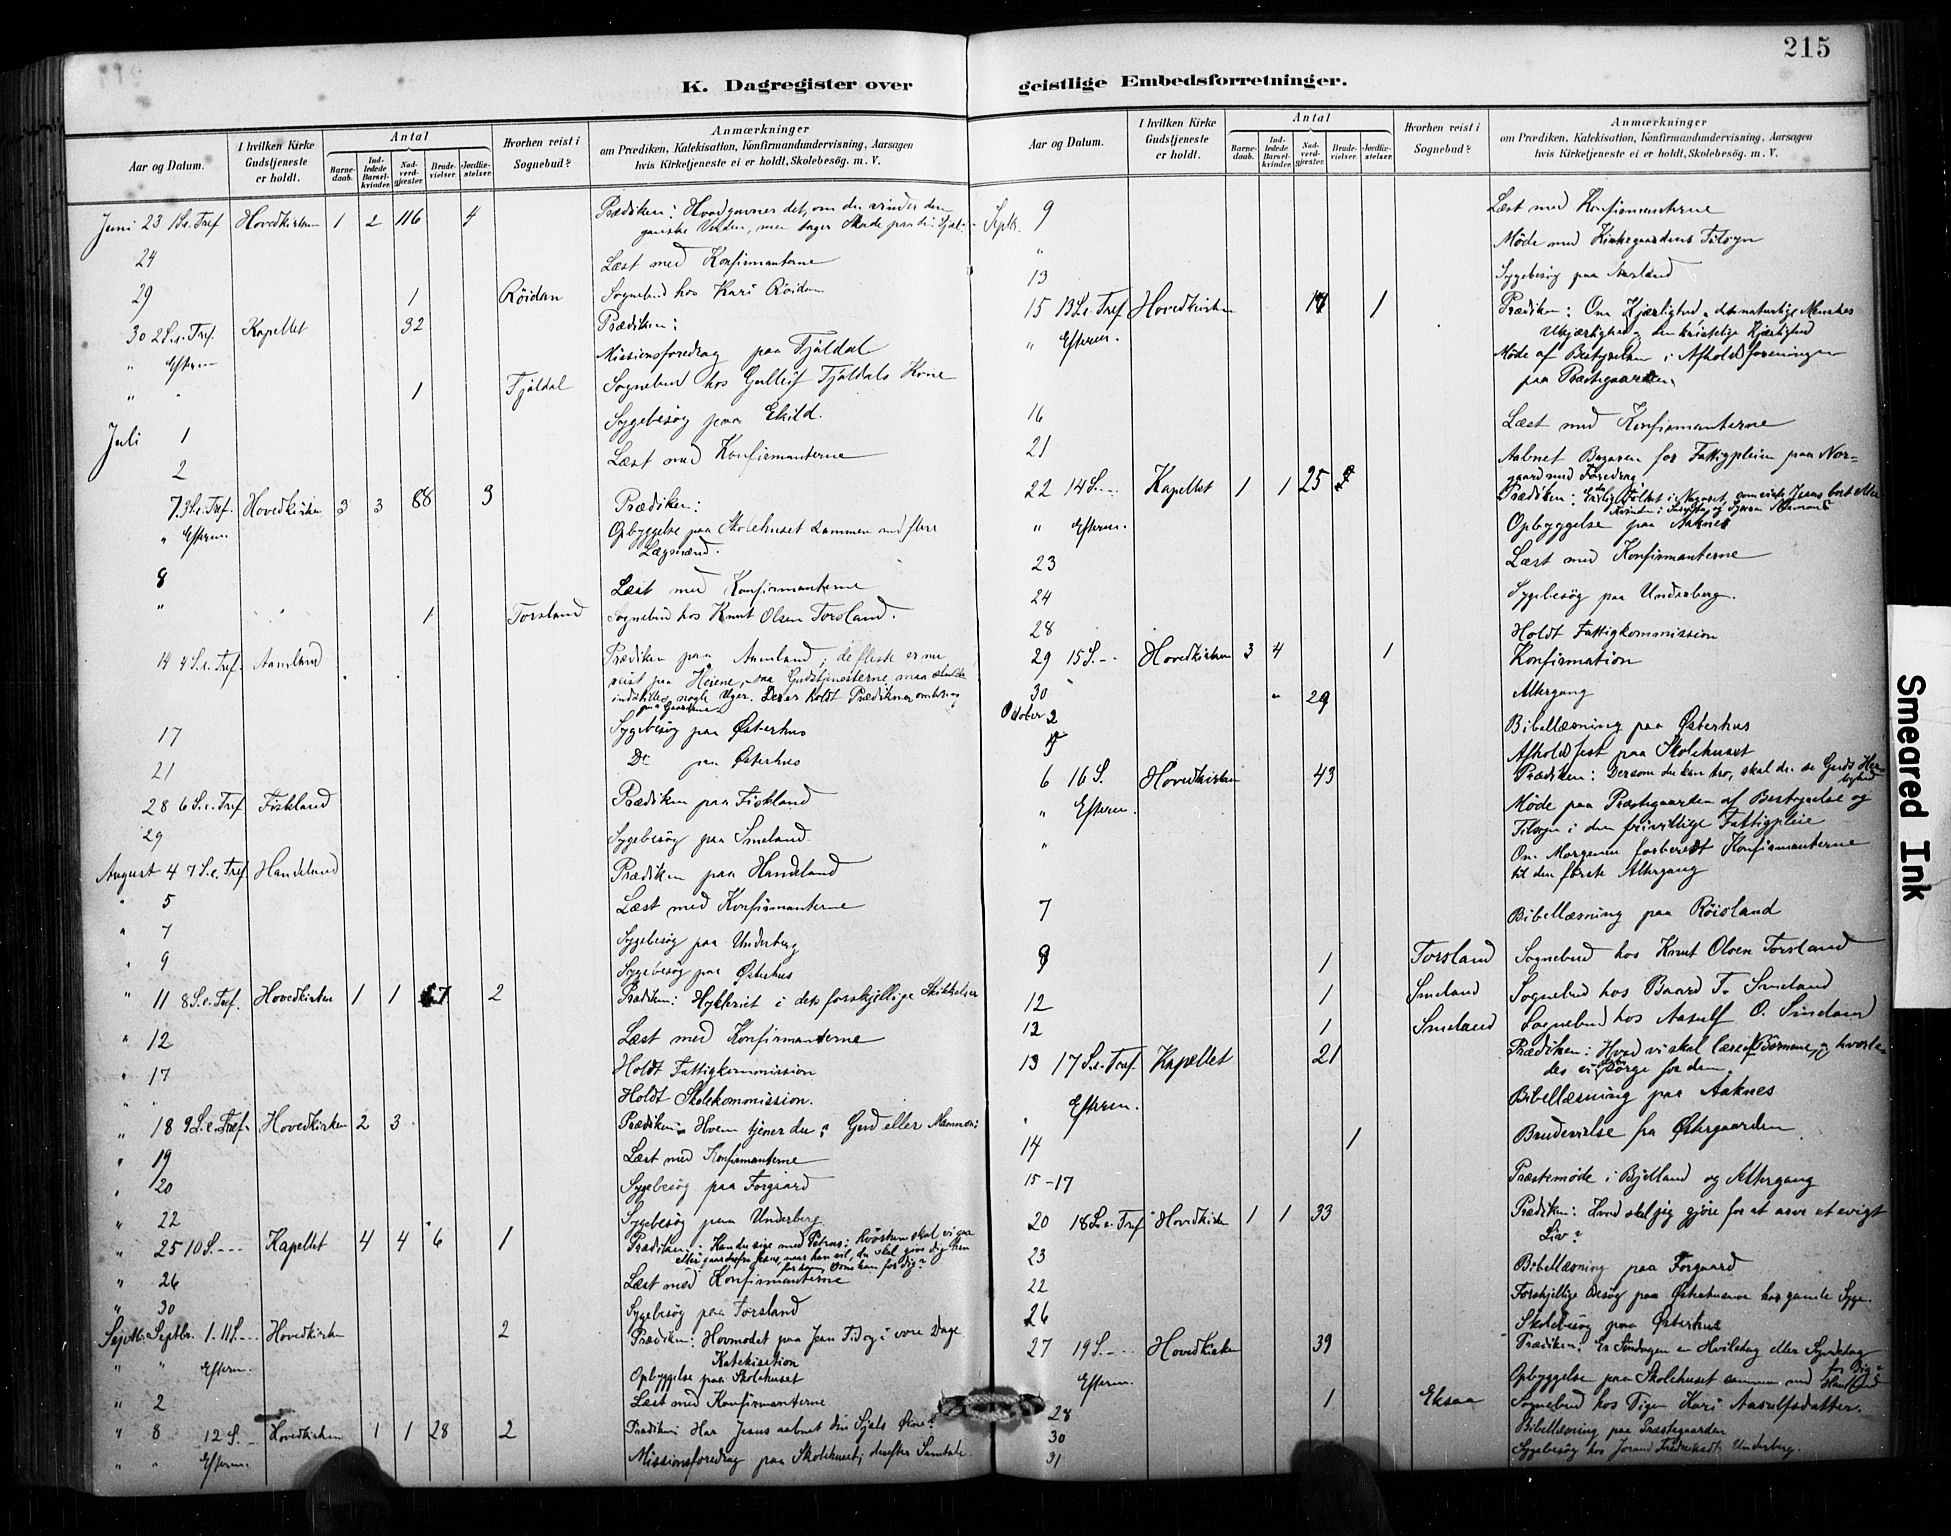 215
K. Dagregister over geistlige Embedsforretninger.
Aar og Datum. I hvilken Kirke Gudstjeneste er holdt. Antal Barnedaab. Indledede Barselkvinder. Nadverdgjester. Brudevielser. Jordfæstelser. Hvorhen reist i Sognebud? Anmærkninger om Prædiken, Katekisation, Konfirmandundervisning, Aarsagen hvis Kirketjeneste ei er holdt, Skolebesøg. m. V.
Juni 23 1 S.e. Tref Hovedkirken 1 2 116 4 Prædiken: Hvad gavner det, om du vinder den
ganske Verden, men tager Skade paa din Sjæl
24 Læst med Konfirmanterne
29 1 Röidan Sognebud hos Kari Röidan
30 2 S.e. Tref. Kapellet 32 Prædiken:
" Efterm Missionsforedrag paa Fjäldal
" " 1 Fjäldal Sognebud hos Gulleif Fjäldals Kone
Juli 1 Sygebesøg paa Ekild.
2 Læst med Konfirmanterne
7. 3 S.e. Tref. Hovedkirken 3 3 88 3 Prædiken:
" Efterm. Opbyggelse paa Skolehuset sammen med flere
Lægmænd.
8 Læst med Konfirmanterne
" " " 1 Torsland Sognebud hos Knut Olsen Torsland.
14 4 S.e. Tref. Aamland Prædiken paa Aamland; de fleste er nu
reist paa Heiene, saa Gudstjenesterne maa
indstilles nogle Uger. Der er holdt Prædikener omkring
paa Gaardene.
17 Sygebesøg paa Østerhus
21 Do paa Østerhus
28 6 S.e. Tref. Fiskland Prædiken paa Fiskland
29 Sygebesøg paa Smeland
August 4 7 S.e. Tref. Handeland Prædiken paa Handeland
" 5 Læst med Konfirmanterne
" 7 Sygebesøg paa Underberg
" 9 Sygebesøg paa Østerhus
" 11 8 S.e. Tref. Hovedkirken 1 1 67 2 Prædiken: Hykleriet i dets forskjellige Skikkelser
" 12 Læst med Konfirmanterne
" 17 Holdt Fattigkommission
" " Holdt Skolekommission.
" 18 9 S.e. Tref. Hovedkirken 2 3 Prædiken: Hvem tjener du: Gud eller Mammon?
" 19 Læst med Konfirmanterne
" 20 Sygebesøg paa Forgaard
" 22 Sygebesøg paa Underberg.
" 25 10 S. - - - Kapellet 4 4 6 1 Prædiken: Kan du sige med Petrus:
" 26 Læst med Konfirmanterne
" 30 Sygebesøg paa Torsland
Septb. Septbr. 1. 11 S. - - Hovedkirken 2 Prædiken: Hovmodet paa Jesu Tid og i vore Dage
Katekisation
" " Efterm. Opbyggelse paa Skolehuset
" 2 Læst med Konfirmanterne
" 8 12 S. - - Hovedkirken 1 1 28 2 Prædiken: Har Jesus aabnet din Sjæls Øine?
" " Efterm. Missionsforedrag paa Skolehuset; derefter Samtale.
Aar og Datum. I hvilken Kirke Gudstjeneste er holdt. Antal Barnedaab. Indledede Barselkvinder. Nadverdgjester. Brudevielser. Jordfæstelser. Hvorhen reist i Sognebud? Anmærkninger om Prædiken, Katekisation, Konfirmandundervisning, Aarsagen hvis Kirketjeneste ei er holdt, Skolebesøg. m. V.
Septb. 9 Læst med Konfirmanterne
" Møde med Kirkegaardens Tilsyn
13 Sygebesøg paa Aasland
15 13 S.e. Tref Hovedkirken 1 Prædiken: Om Kjærlighed, det naturlige Menneskes
Ukjærlighed og den kristelige Kjærlighed
" Efterm. Møde af Bestyrelsen i Afholdsforeningen
paa Præstegaarden.
16 Læst med Konfirmanterne
21 Aabnet Bazaren for Fattigpleien paa Nor-
gaard med Foredrag.
22 14 S. - - Kapellet 1 1 25 Prædiken:
" Efterm. Opbyggelse paa Aaknes
23 Læst med Konfirmanterne
24 Sygebesøg paa Underberg.
28 Holdt Fattigkommission
29 15 S. - - Hovedkirken 3 4 1 Konfirmation
30 " 29 Altergang
Oktober 2 Bibellæsning paa Østerhus
5 Afholdsfest paa Skolehuset
6 16 S. Hovedkirken 43 Prædiken: Dersom du kan tro, skal du se Guds Her-
lighed
" Efterm. Møde paa Præstegaarden af Bestyrelse og
Tilsyn i den frivillige Fattigpleie
" Om Morgenen forberedt Konfirmanterne
til den første Altergang
7 Bibellæsning paa Röisland
9 1 Torsland Sognebud hos Knut Olsen Torsland
12 1 Smeland Sognebud hos Baard T. Smeland
12 1 Smeland Sognebud hos Aasulf O. Smeland
13 17 S.e. Tref. Kapellet 21 Prædiken: Hvad vi skal lære af Børnene, og hvorle-
des vi skal sørge for dem.
" Efterm. Bibellæsning paa Aaknes
14 1 Brudevielse fra Østergaarden
15-17 Præstemøde i Bjelland og Altergang
20 18 S.e. Tref Hovedkirken 1 1 33 Prædiken: Hvad skal jeg gjøre for at arve et evigt
Liv?
23 Bibellæsning paa Forgaard
22 Forskjellige Besøg paa Østerhusene hos gamle Syge.
26 Skolebesøg paa Østerhus
27 19 S. - - - Hovedkirken 39 Prædiken: Er Søndagen en Hviledag eller Syndedag
for Dig?
Efterm. Opbyggelse paa Skolehuset sammen med
28 1 Eksaa Sognebud hos Pigen Kari Aasulfsdatter.
30 Bibellæsning paa Præstegaarden
31 Sygebesøg hos Jorand Fredriksdt. Underberg.
Smeared Ink